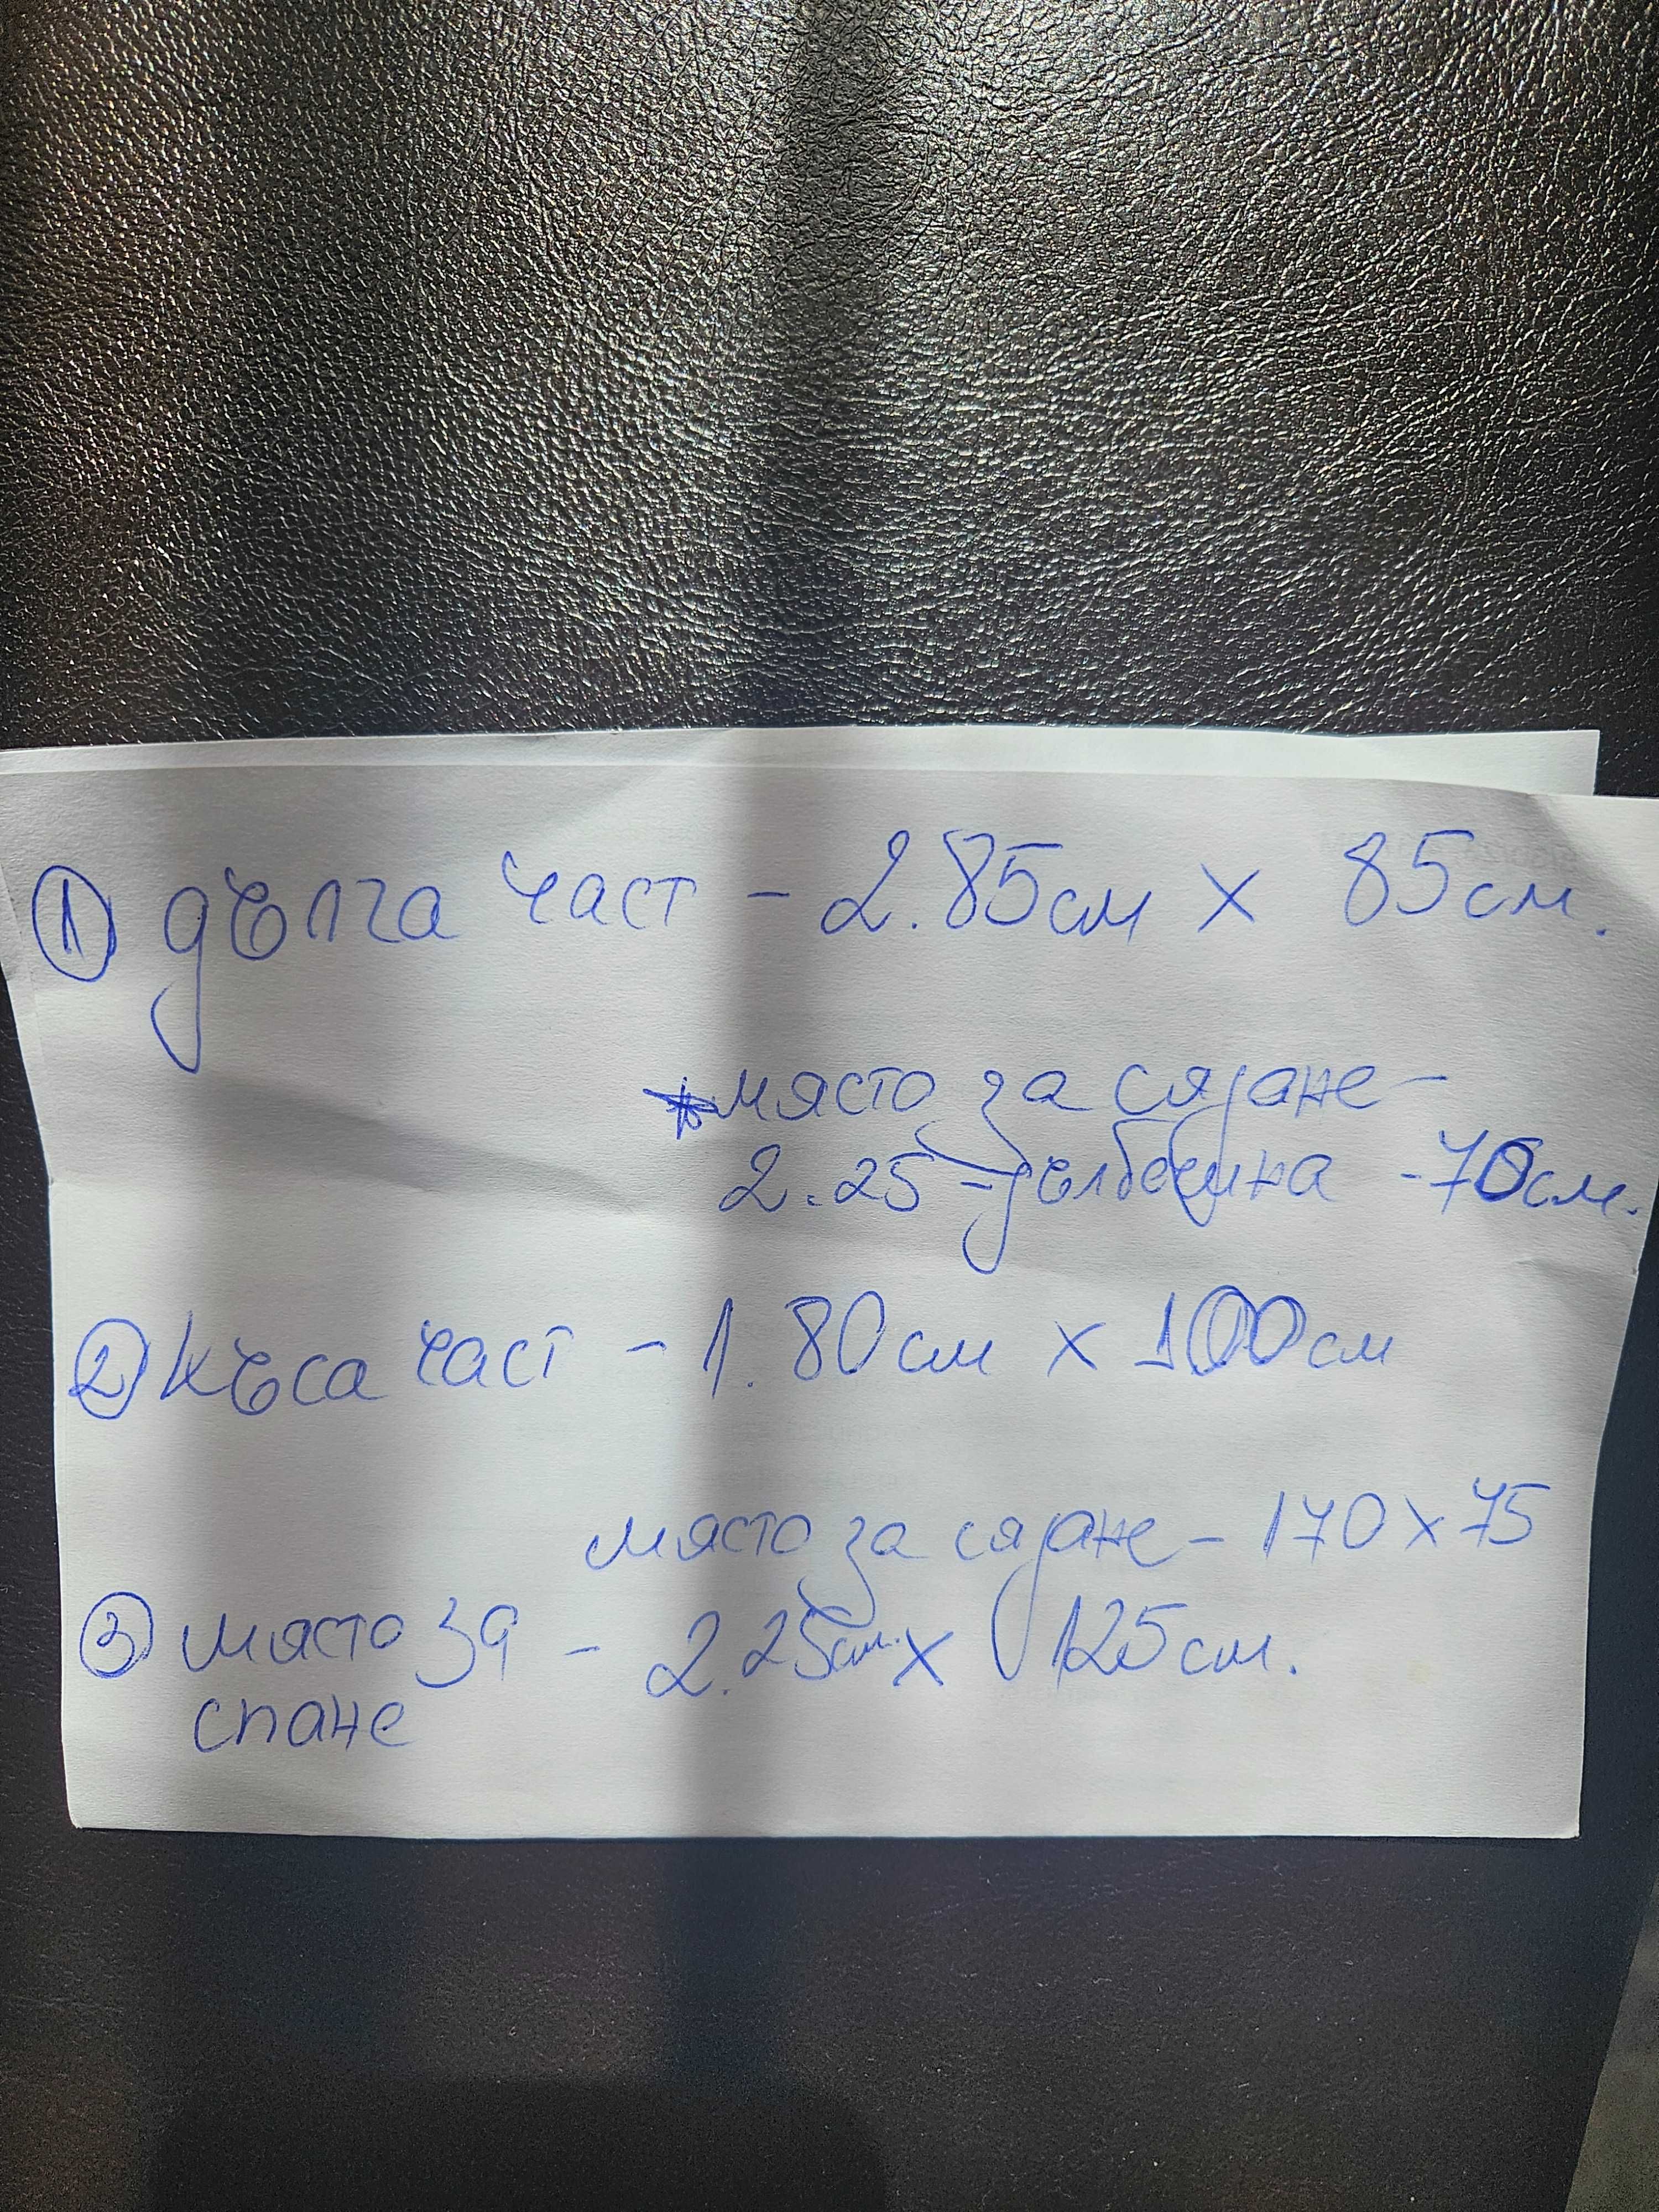 ① дълга част - 2.85см x 85см.
* място за сядане -
2.25 - дълбочина - 70см.
② къса част - 1.80см x 100см
място за сядане - 170 x 75
③ място за - 2.25см. x 125см.
спане